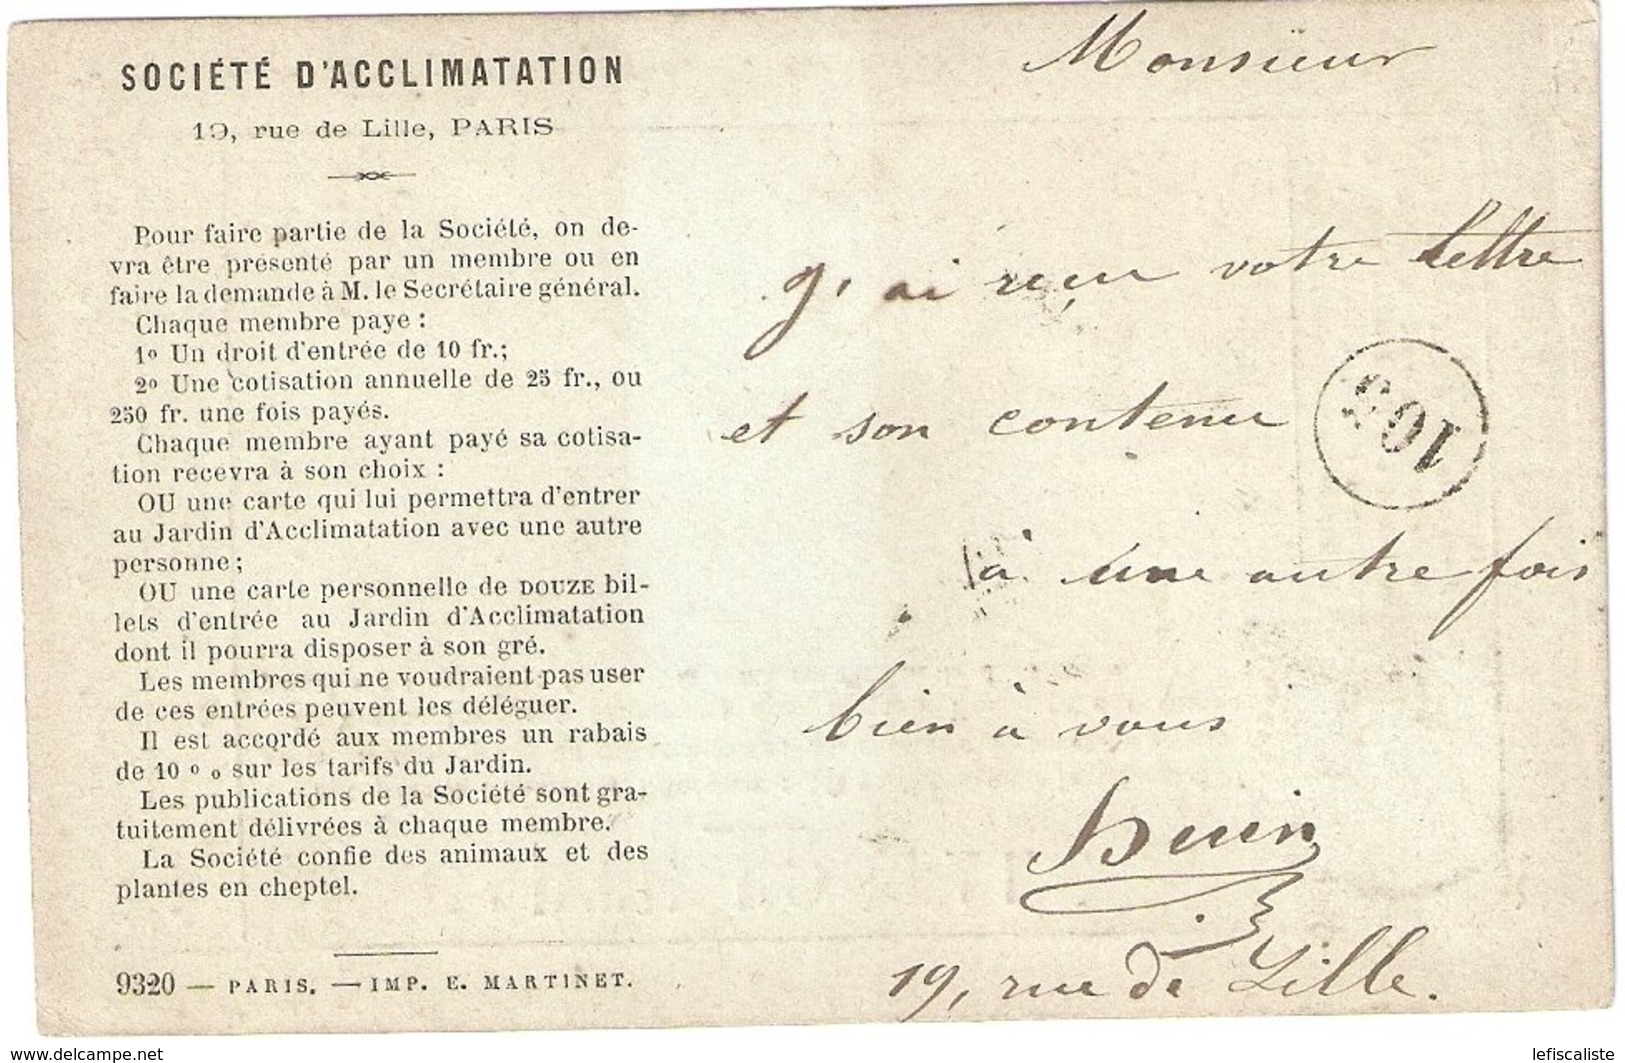 SOCIÉTÉ D'ACCLIMATATION
19, rue de Lille, PARIS
Pour faire partie de la Société, on de-
vra être présenté par un membre ou en
faire la demande à M. le Secrétaire général.
Chaque membre paye :
1º Un droit d'entrée de 10 fr.;
2º Une cotisation annuelle de 25 fr., ou
250 fr. une fois payés.
Chaque membre ayant payé sa cotisa-
tion recevra à son choix :
OU une carte qui lui permettra d'entrer
au Jardin d'Acclimatation avec une autre
personne ;
OU une carte personnelle de DOUZE bil-
lets d'entrée au Jardin d'Acclimatation
dont il pourra disposer à son gré.
Les membres qui ne voudraient pas user
de ces entrées peuvent les déléguer.
Il est accordé aux membres un rabais
de 10 º o sur les tarifs du Jardin.
Les publications de la Société sont gra-
tuitement délivrées à chaque membre.
La Société confie des animaux et des
plantes en cheptel.
9320 — PARIS. — IMP. E. MARTINET.
Monsieur
J'ai reçu votre lettre
et son contenu
à une autre fois
bien à vous
19, rue de Lille.
delcampe.net
lefiscaliste